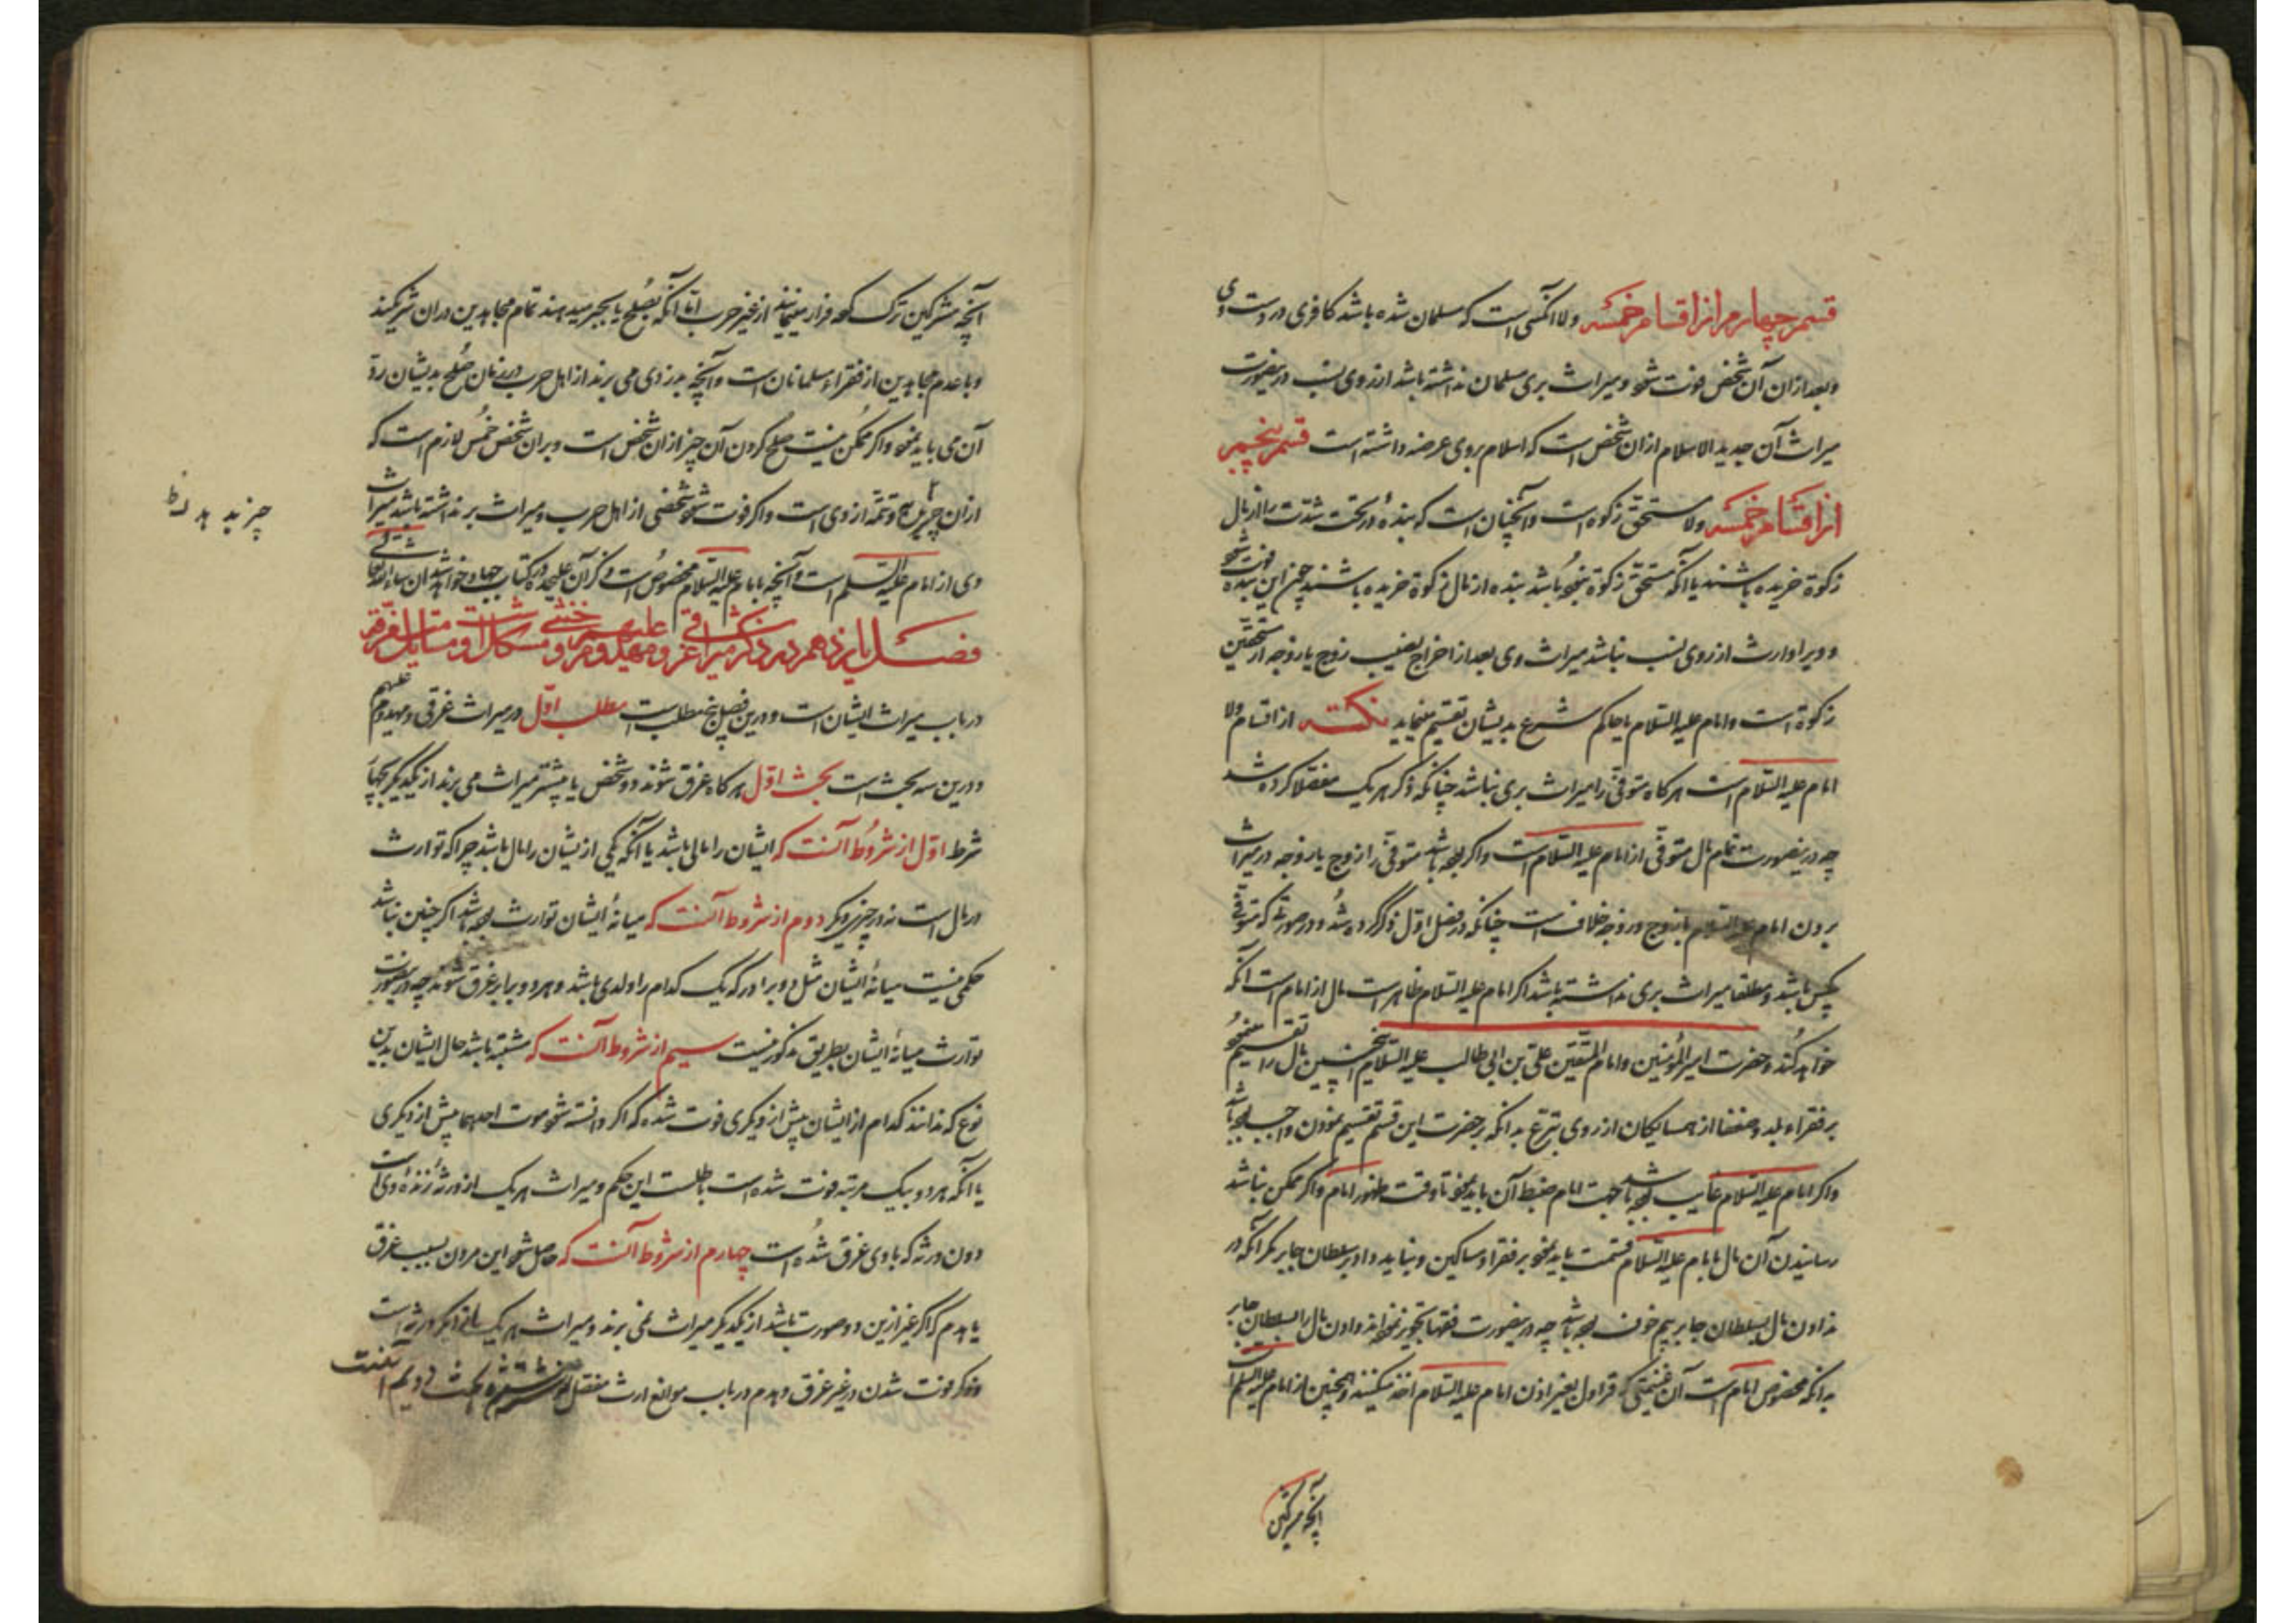 قسم چهارم از اقسام خمسه ولا آنکسی است که مسلمان شده باشد کافری در دست وی
و بعد از ان آن شخص فوت شود و میراث بری مسلمان نداشته باشد از روی نسب درینصورت
میراث آن جدید الاسلام ازان شخص است که اسلام بروی عرضه داشته است قسم پنجم
از اقسام خمسه ولا مستحق زکوة است و آنچنان است که بنده در تحت شدت را از مال
زکوة خریده باشند یا آنکه مستحق زکوة نبود باشد بنده از مال زکوة خریده باشند چون این بنده فوت شود
و ویرا وارث از روی نسب نباشد میراث وی بعد از اخراج نصیب زوج یا زوجه از مستحقین
زکوة است و امام علیه السلام یا حاکم شرع بدیشان تقسیم مینماید نکته از اقسام ولا
امام علیه السلام است هرکاه متوفی را میراث بری نباشد چنانکه ذکر هر یک مفصلا کرده شد
چه درینصورت تمام مال متوفی از امام علیه السلام است و اکر بوده باشد متوفی را زوج یا زوجه در میراث
بردن امام علیه السلام با زوج و زوجه خلاف است چنانکه در فصل اول ذکر کرده شد و در صورتی که متوفی
بیکس باشد و مطلقا میراث بری نداشته باشد اکر امام علیه السلام ظاهر است مال از امام است آنکه
خواهد کند و حضرت امیر المؤمنین و امام المتقین علی بن ابی طالب علیه السلام اینچنین مال را تقسیم مینمود
بر فقراء بلد و ضعفا از همسایکان از روی تبرع بدانکه بر حضرت این قسم تقسیم نمودن واجب بوده باشد
و اکر امام علیه السلام غایب بوده باشد جهت امام ضبط آن باید نمود تا وقت ظهور امام و اکر ممکن نباشد
رسانیدن آن مال بامام علیه السلام قسمت باید نمود بر فقرا و مساکین و نباید داد بر سلطان جابر مکر آنکه در
ندادن مال بسلطان جابر بیم خوف بوده باشد چه درینصورت فقها تجویز نموده اند دادن مال را بسلطان جابر
بدانکه مخصوص امام است آن غنیمتی که قراول بغیر اذن امام علیه السلام اخذ میکنند و همچنین از امام علیه السلم است
آنچه مشرکین
آنچه مشرکین ترک کرده فرار مینمایند از غیر حرب اما آنکه بصلح یا بجبر میدهند تمام مجاهدین دران شریکند
و با عدم مجاهدین از فقراء مسلمانان است و آنچه بدزدی می برند از اهل حرب در زمان صلح بدیشان رد
آن می باید نمود و اکر ممکن نیست صلح کردن آن چیز ازان شخص است و بران شخص خمس لازم است که
ازان چیز بدهد و تتمه از وی است و اکر فوت شود شخصی از اهل حرب و میراث بر نداشته باشد میراث
وی از امام علیه السلم است و آنچه بامام علیه السلام مخصوص است ذکر آن علیحده در کتاب جهاد خواهد شد ان شاء الله تعالی
فصل یازدهم در ذکر میراث غرقی و مهدوم علیهم و خنثی مشکل است و مسایل متفرقه
در باب میراث ایشان است و درین فصل پنج مطلب است مطلب اول در میراث غرقی و مهدوم علیهم
و درین سه بحث است بحث اول هرکاه غرق شوند دو شخص یا بیشتر میراث می برند از یکدیکر بچهار
شرط اول از شروط آنست که ایشان را مالی باشد یا آنکه یکی از یشان را مال باشد چرا که توارث
در مال است نه در چیزی دیکر دوم از شروط آنست که میانهٔ ایشان توارث بوده باشد اکر چنین نباشد
حکمی نیست میانهٔ ایشان مثل دو برادر که یک کدام را ولدی باشد و هر دو برابر غرق شوند چه درینصورت
توارث میانهٔ ایشان بطریق مذکور نیست سیم از شروط آنست که مشتبه باشد حال ایشان بدین
نوع که ندانند کدام از ایشان پیش از دیکری فوت شده که اکر دانسته شود موت احدیهما پیش از دیکری
یا آنکه هر دو بیک مرتبه فوت شده است باطلست این حکم و میراث هر یک از ورثهٔ زندهٔ وی است
دون ورثه که با وی غرق شده است چهارم از شروط آنست که حاصل شود این مردن بسبب غرق
یا هدم که اکر غیر ازین دو صورت باشد از یکدیکر میراث نمی برند و میراث هر یک از دیکر ورثه است
و ذکر فوت شدن در غیر غرق و هدم در باب موانع ارث مفصل بحث دویم آنست
چیز بدهد ظ